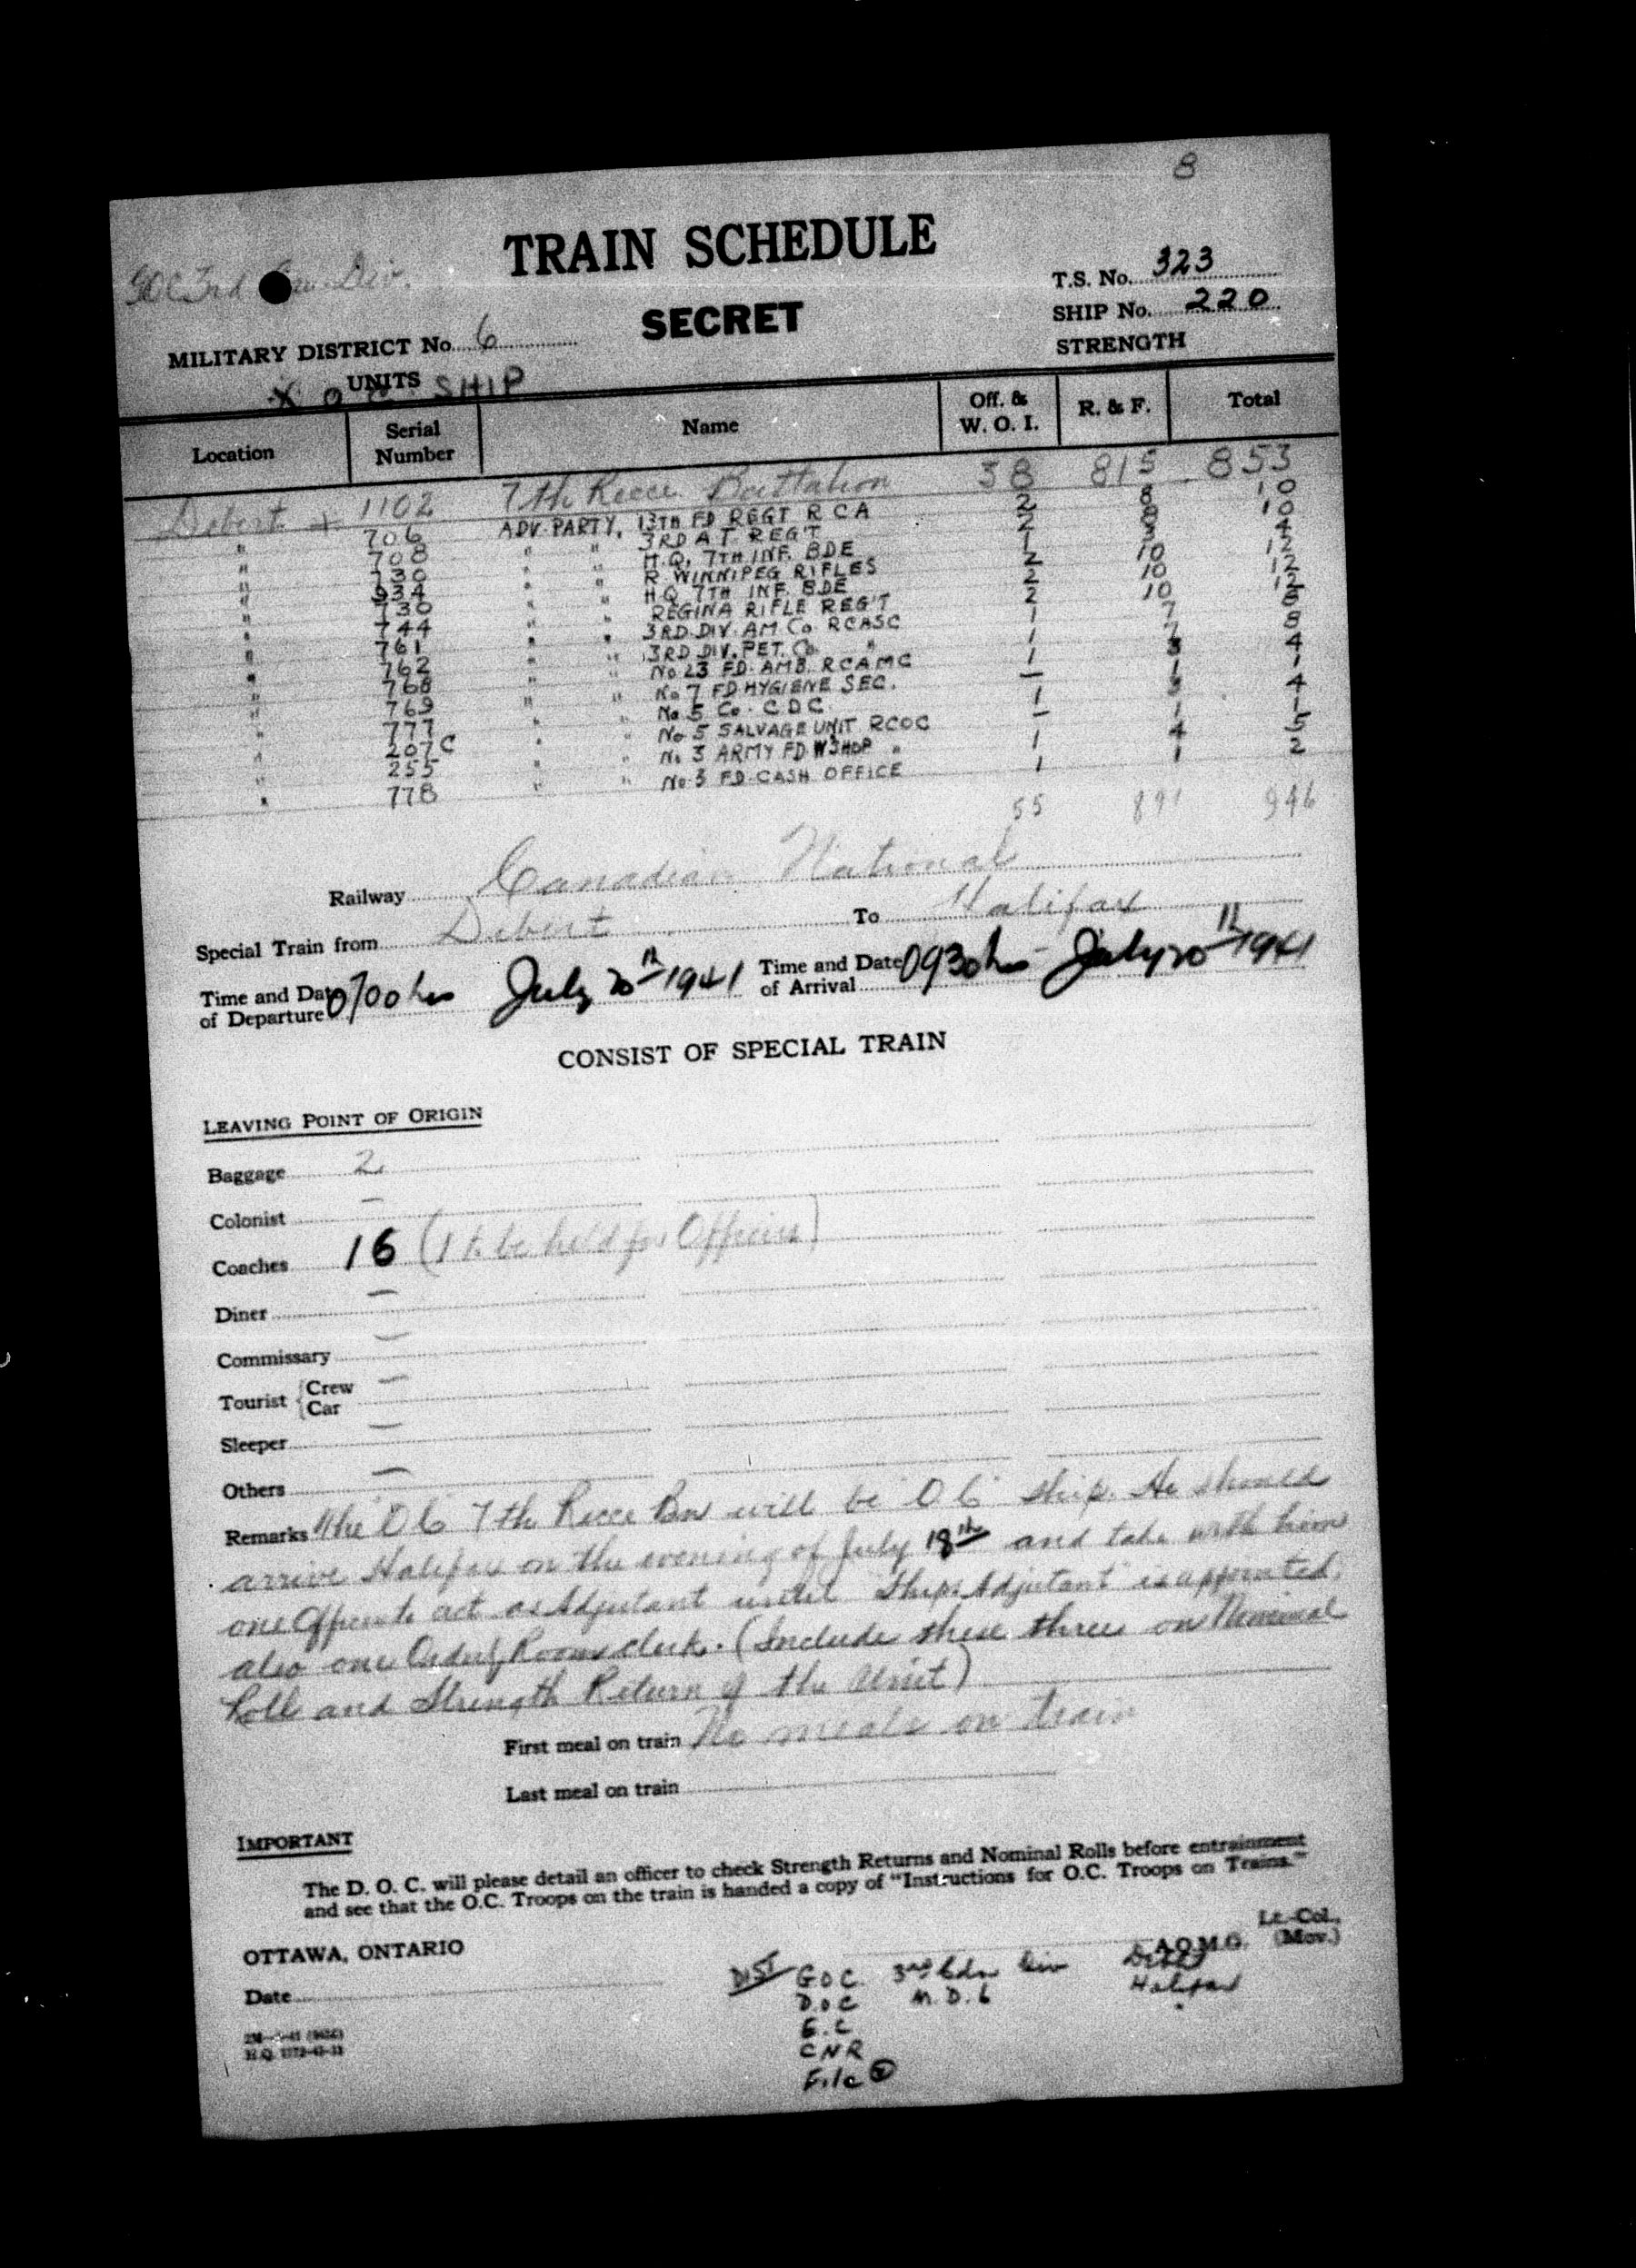 8
TRAIN SCHEDULE
GOC 3rd Div.
T.S. No. 323
SECRET
SHIP No. 220
MILITARY DISTRICT No. 6
STRENGTH
UNITS
X O C SHIP
Location Serial Number Name Off. & W. O. I. R. & F. Total
Debert + 1102 7th Recce Battalion 38 815 853
" 706 ADV. PARTY, 13TH FD REGT R C A 2 8 10
" 708 " " 3RD A T REG'T 2 8 10
" 730 " " H.Q. 7TH INF. BDE 1 3 4
" 934 " " R WINNIPEG RIFLES 2 10 12
" 730 " " H.Q 7TH INF. BDE 2 10 12
" 744 " " REGINA RIFLE REG'T 2 10 12
" 761 " " 3RD. DIV. AM. Co. RCASC 1 7 8
" 762 " " 3RD DIV. PET. Co. " 1 7 8
" 768 " " No 23 FD. AMB. RCAMC 1 3 4
" 769 " " No 7 FD HYGIENE SEC. — 1 1
" 777 " " No 5 Co. C D C 1 3 4
" 207C " " No 5 SALVAGE UNIT RCOC — 1 1
" 255 " " No 3 ARMY FD WSHOP " 1 4 5
" 778 " " No 3 FD. CASH OFFICE 1 1 2
55 891 946
Railway Canadian National
Special Train from Debert To Halifax
Time and Date of Departure 0700 hrs July 20th 1941 Time and Date of Arrival 0930 hrs - July 20th 1941
CONSIST OF SPECIAL TRAIN
LEAVING POINT OF ORIGIN
Baggage 2
Colonist —
Coaches 16 (1 to be held for Officers)
Diner —
Commissary —
Tourist { Crew Car —
Sleeper —
Others —
Remarks The O C 7th Recce Bn will be "O C" Ship. He should
arrive Halifax on the evening of July 18th and take with him
one Officer to act as Adjutant until "Ships Adjutant" is appointed,
also one Orderly Room clerk. (Include these three on Nominal
Roll and Strength Return of the Unit)
First meal on train No meals on train
Last meal on train
IMPORTANT
The D. O. C. will please detail an officer to check Strength Returns and Nominal Rolls before entrainment
and see that the O.C. Troops on the train is handed a copy of "Instructions for O.C. Troops on Trains."
Lt.-Col.,
OTTAWA, ONTARIO
A.Q.M.G. (Mov.)
DIST G O C. 3rd Cdn Div Debert
Date
D.O.C M. D. 6 Halifax
E.C
CNR
File